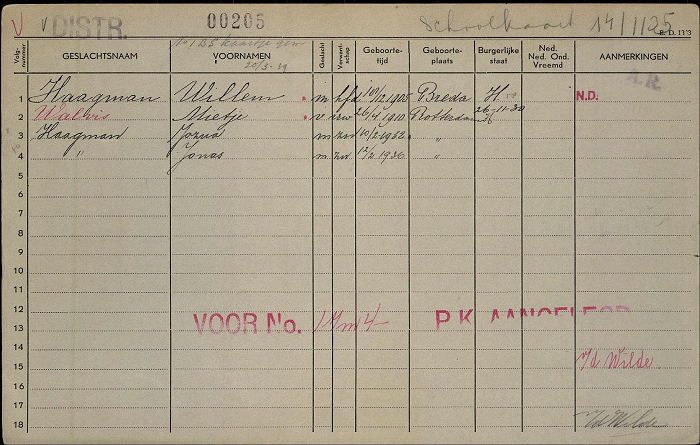 V V DISTR. 00205 Schoolkaart 14/1125
R.D. 1113
Volgnummer GESLACHTSNAAM VOORNAMEN Geslacht Verwantschap Geboortetijd Geboorteplaats Burgerlijke staat Ned. Ned. Ond. Vreemd AANMERKINGEN
20/3-39
A.R.
1 Haagman Willem m hfd 10/12 1905 Breda H. N.D.
2 Walvis Mietje v vrw 26/4 1910 Rotterdam 26-11-30
3 Haagman Jozua m zn 10/2 1932 "
4 " Jonas m zn 12/2 1936 "
5
6
7
8
9
10
11
12
13 VOOR No. 1 t/m 4 P.K. AANGELEGD
14
15 v/d Wilde
16
17
18 v/d Wilde